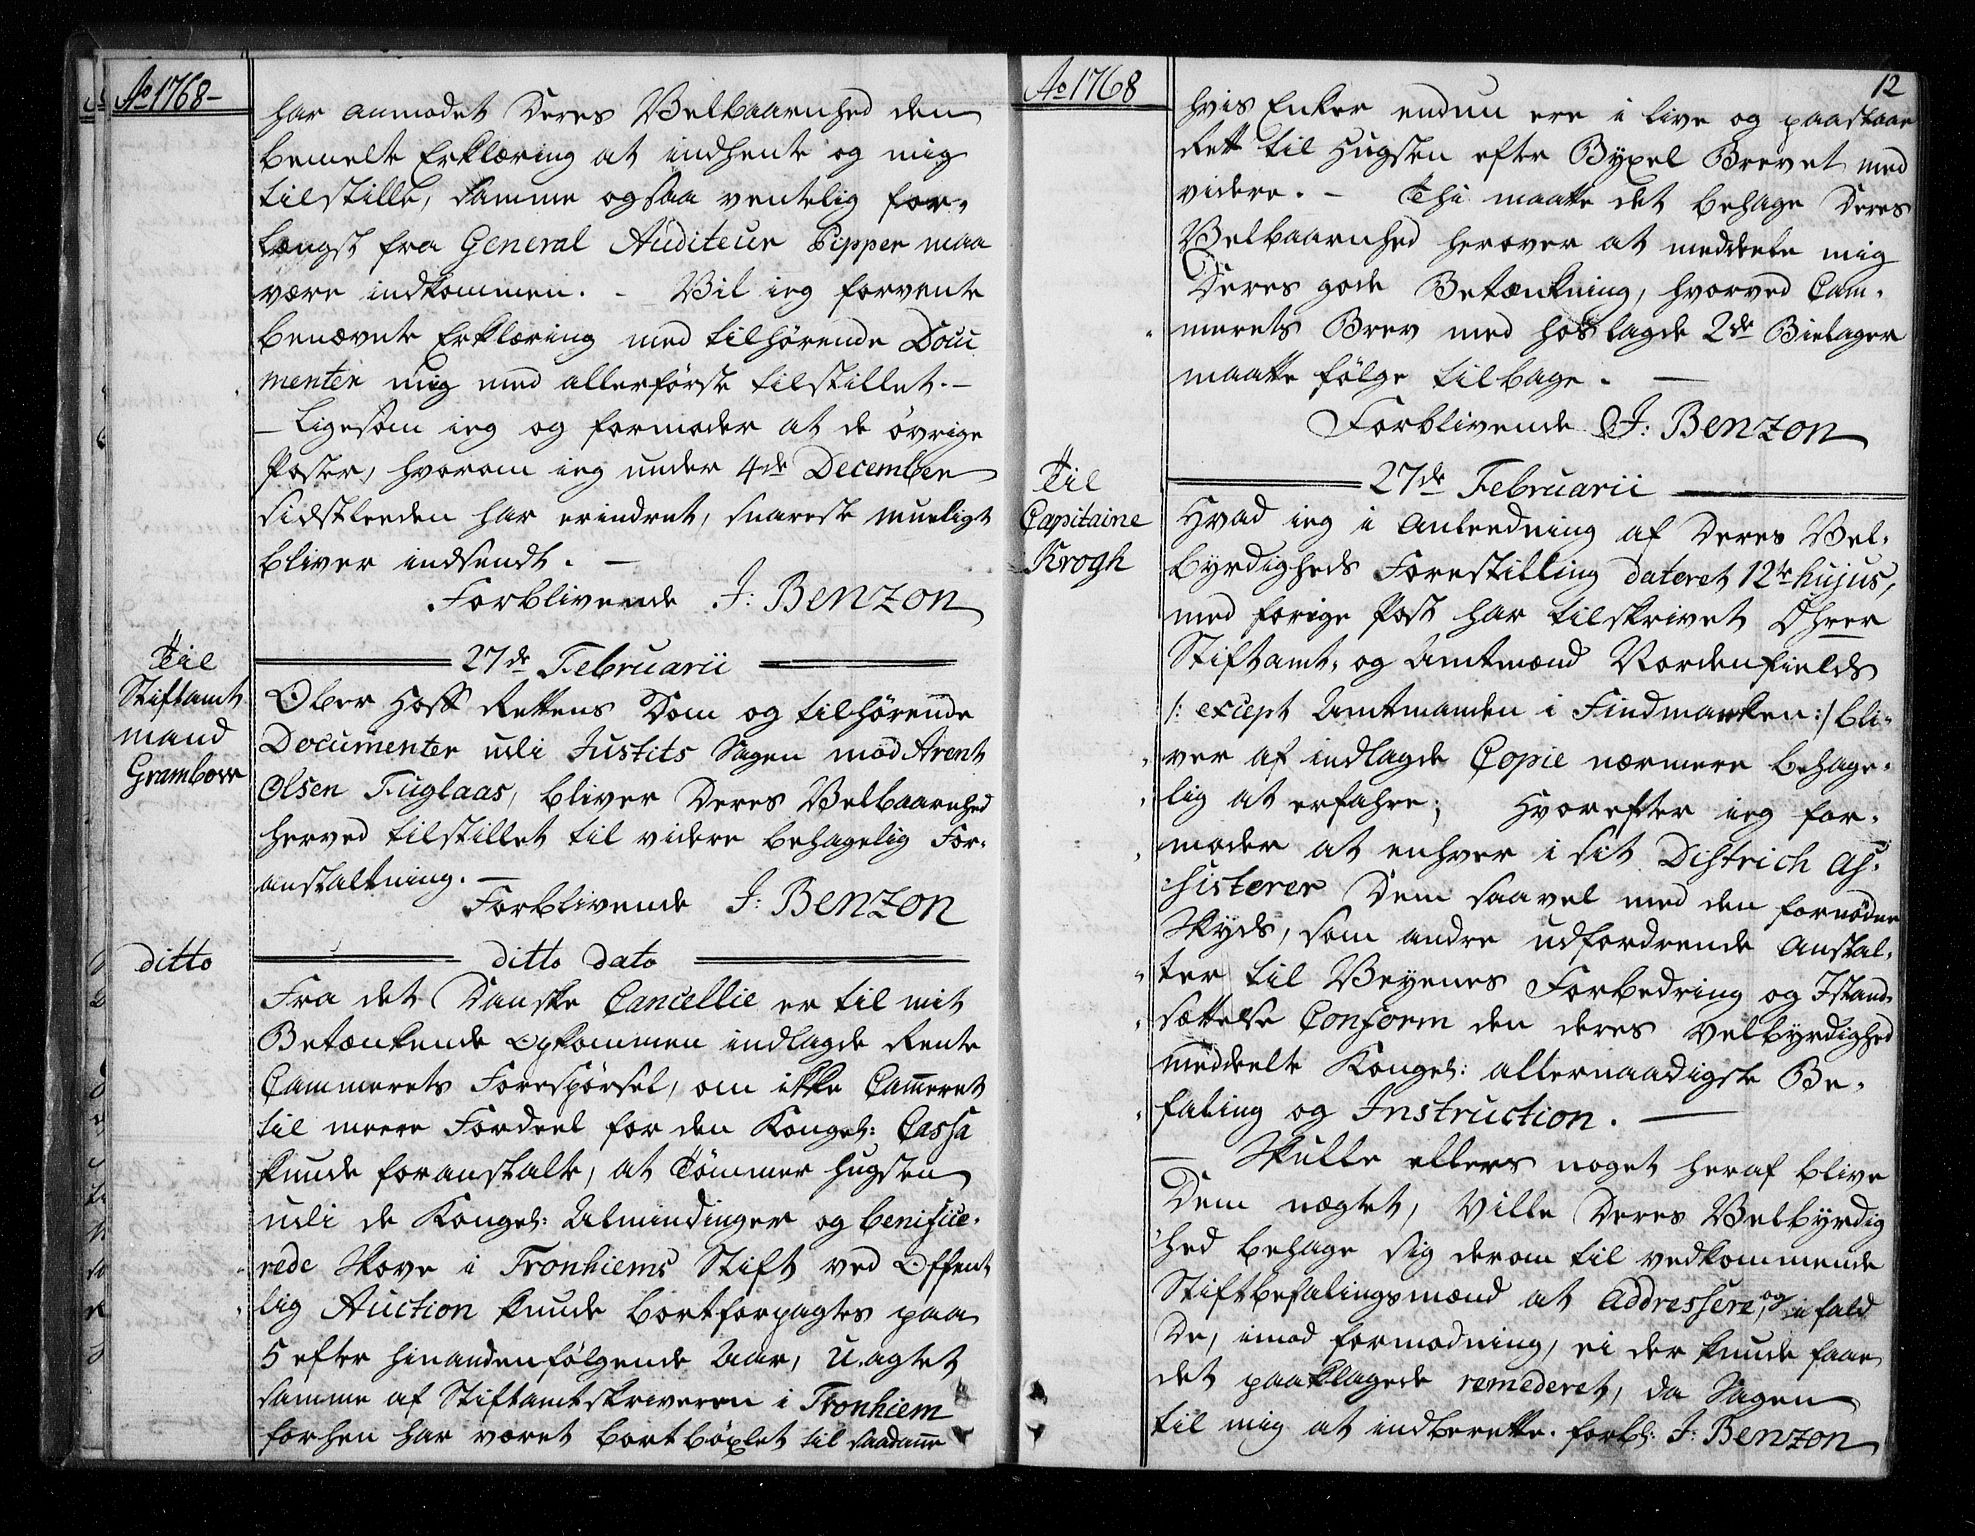 Ao 1768-
har anmodet Deres Velbaarnhed den
bemelte Erklæring at indhente og mig
tilstille, samme ogsaa ventelig for-
længst fra General Auditeur Pipper maa
være indkommen. - Vil ieg forvente
benævnte Erklæring med tilhørende Docu
menter mig med allerførste tilstillet.-
- Ligesom ieg og formoder at de øvrige
Poster, hvorom ieg under 4de December
sidstleeden har erindret, snareste mueligt
bliver indsendt. -
Forblivende J: Benzon
Til
Stiftamt
mand
Grambow
27de Februarii
Ober Hoff Rettens Dom og tilhørende
Documenter udi Justits Sagen mod Arent
Olsen Fuglaas, bliver Deres Velbaarnhed
herved tilstillet til videre behagelig For-
anstaltning. -
Forblivende J: Benzon
ditto
ditto dato
Fra det Danske Cancellie er til mit
Betænkende Opkommen indlagde Rente
Cammerets Forespørsel, om ikke Cam̅eret
til meere Fordeel for den Kongel: Cassa
kunde foranstalte, at Tømmer Hugsten
udi de Kongel: Almindinger og benifice-
rede Skove i Tronhiems Stift ved Offent
lig Auction kunde bortforpagtes paa
5 efter hinandenfølgende Aar, U-agtet
samme af Stiftamtskriveren i Tronhiem
forhen har været bortbøxlet til saadan̅e
Ao 1768
12
hvis Enker endnu ere i live og paastaar
Rett til Hugsten efter Byxel Brevet med
videre. - Thi maatte det behage Deres
Velbaarnhed herover at meddeele mig
Deres gode Betænkning, hvorved Cam-
merets Brev med hoslagde 2de Bielager
maatte følge tilbage. -
Forblivende J: Benzon
Til
Capitaine
Krogh
27de Februarii
Hvad ieg i Anleedning af Deres Vel-
byrdigheds Forestilling dateret 12te hujus,
med forige Post har tilskrevet Dhrer
Stiftamt- og Amtmænd Nordenfields
/: except Amtmanden i Findmarken:/ bli-
ver af indlagde Copie nærmere behage-
lig at erfahre; Hvorefter ieg for-
moder at enhver i sit District As-
sisterer Dem saavel med den fornødne
Skyds, som andre udfordrende Anstal-
ter til Veyenes Forbedring og Istand-
sættelse Conform den deres Velbyrdighed
meddeelte Kongel: allernaadigste Be-
faling og Instruction. -
- Skulle ellers noget heraf blive
Dem nægtet, Ville Deres Velbyrdig
hed behage sig derom til vedkommende
Stiftbefalingsmænd at Addressere, og i fald
De, imod formodning, ei der kunde faae
det paaklagede remederet, da Sagen
til mig at indberette. forbl: J: Benzon